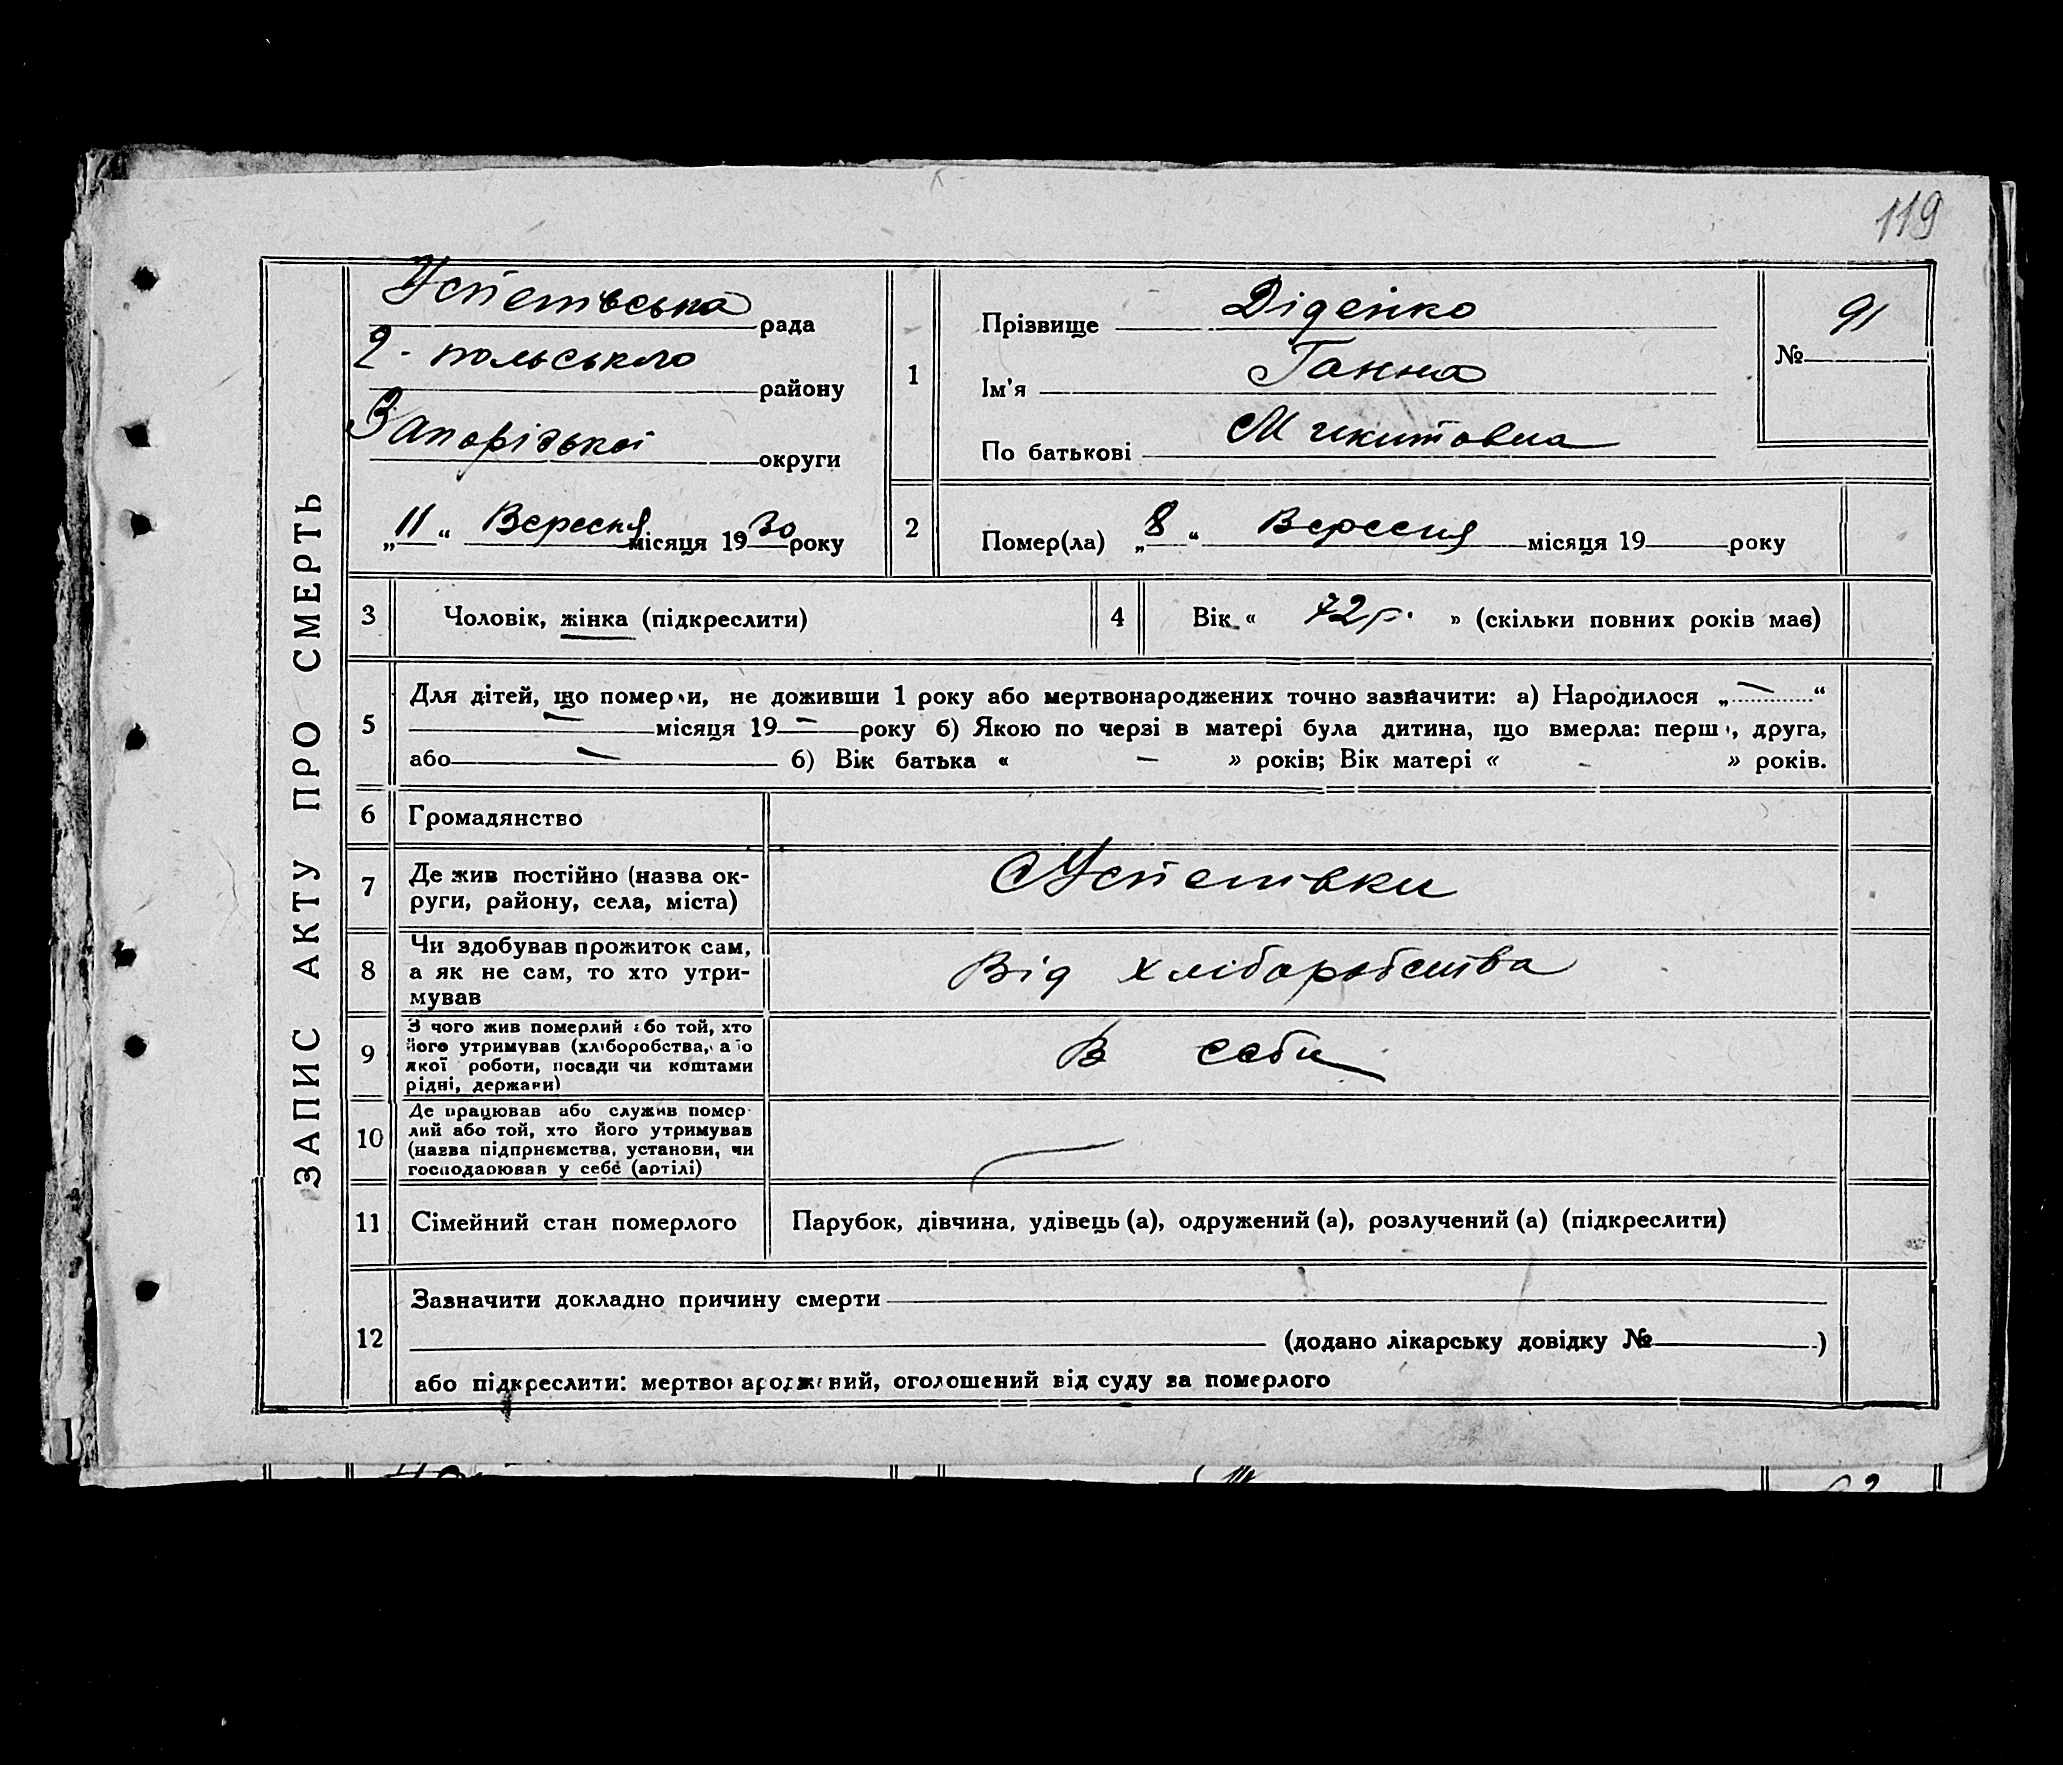 119
ЗАПИС АКТУ ПРО СМЕРТЬ
Успенівська рада
Г-польського району
Запорізької округи
„11“ Вересня місяця 1930 року
1
Прізвище Діденко
Ім'я Ганна
По батькові Микитовна
№ 91
2
Помер(ла) „8“ Вересня місяця 19 року
3 Чоловік, жінка (підкреслити)
4 Вік « 72 р. » (скільки повних років має)
5
Для дітей, що померли, не доживши 1 року або мертвонароджених точно зазначити: а) Народилося „—“
— місяця 19 — року б) Якою по черзі в матері була дитина, що вмерла: перша, друга,
або — б) Вік батька « — » років; Вік матері « - » років.
6 Громадянство
7 Де жив постійно (назва ок-
руги, району, села, міста)
Успенівки
8 Чи здобував прожиток сам,
а як не сам, то хто утри-
мував
Від хліборобства
9 З чого жив померлий або той, хто
його утримував (хліборобства, або
якої роботи, посади чи коштами
рідні, держави)
В себи
10 Де працював або служив помер-
лий або той, хто його утримував
(назва підприємства, установи, чи
господарював у себе (артілі)
11 Сімейний стан померлого
Парубок, дівчина, удівець (а), одружений (а), розлучений (а) (підкреслити)
12
Зазначити докладно причину смерти
(додано лікарську довідку № )
або підкреслити: мертвонароджений, оголошений від суду за померлого